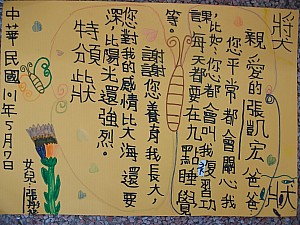 獎狀
親愛的張凱宏爸爸:
您平常都會關心我
,比如:您都會叫我複習功
課,每天都要在九點睡覺
等。
謝謝您養育我長大,
您對我的感情比大海還要
深,比陽光還強烈。
特頒此狀
女兒張
中華民國101年5月7日